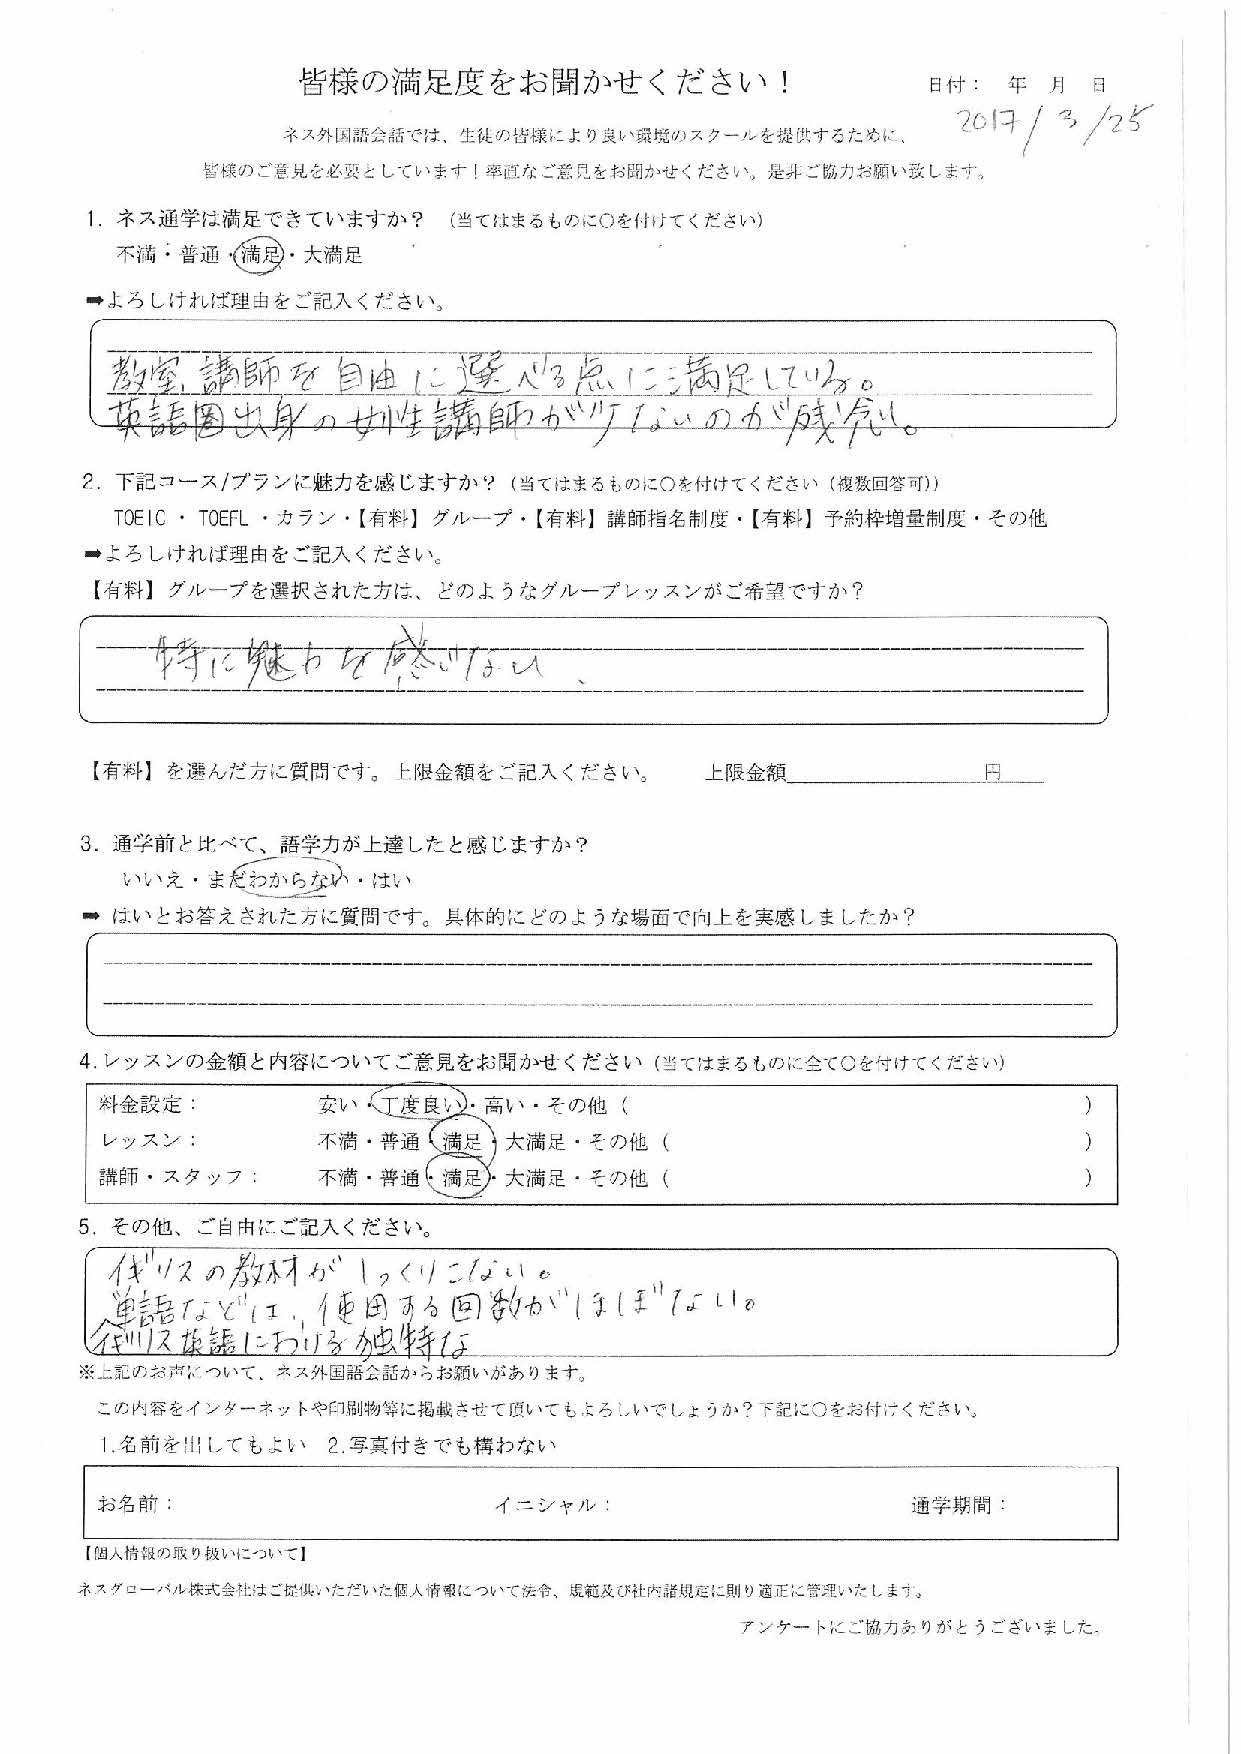 皆様の満足度をお聞かせください！
日付： 年 月 日
2017/3/25
ネス外国語会話では、生徒の皆様により良い環境のスクールを提供するために、
皆様のご意見を必要としています！率直なご意見をお聞かせください。是非ご協力お願い致します。
1. ネス通学は満足できていますか？ （当てはまるものに○を付けてください）
不満・普通・満足・大満足
➡よろしければ理由をご記入ください。
教室、講師を自由に選べる点に満足している。
英語圏出身の女性講師が少ないのが残念。
2. 下記コース/プランに魅力を感じますか？（当てはまるものに○を付けてください（複数回答可））
TOEIC ・ TOEFL ・カラン・【有料】グループ・【有料】講師指名制度・【有料】予約枠増量制度・その他
➡よろしければ理由をご記入ください。
【有料】グループを選択された方は、どのようなグループレッスンがご希望ですか？
特に魅力を感じない
【有料】を選んだ方に質問です。上限金額をご記入ください。 上限金額 円
3. 通学前と比べて、語学力が上達したと感じますか？
いいえ・まだわからない・はい
➡ はいとお答えされた方に質問です。具体的にどのような場面で向上を実感しましたか？
4.レッスンの金額と内容についてご意見をお聞かせください（当てはまるものに全て○を付けてください）
料金設定： 安い・丁度良い・高い・その他（ ）
レッスン： 不満・普通・満足・大満足・その他（ ）
講師・スタッフ： 不満・普通・満足・大満足・その他（ ）
5. その他、ご自由にご記入ください。
イギリスの教材がしっくりこない。
単語などは、使用する回数がほぼない。
イギリス英語における独特な
※上記のお声について、ネス外国語会話からお願いがあります。
この内容をインターネットや印刷物等に掲載させて頂いてもよろしいでしょうか？下記に○をお付けください。
1.名前を出してもよい 2.写真付きでも構わない
お名前： イニシャル： 通学期間：
【個人情報の取り扱いについて】
ネスグローバル株式会社はご提供いただいた個人情報について法令、規範及び社内諸規定に則り適正に管理いたします。
アンケートにご協力ありがとうございました。